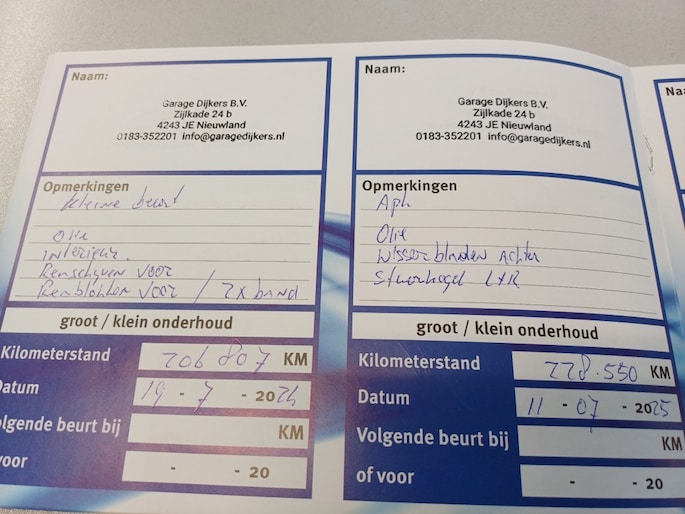 Naam:
Garage Dijkers B.V.
Zijlkade 24 b
4243 JE Nieuwland
0183-352201 info@garagedijkers.nl
Opmerkingen
kleine beurt
Olie
Interieur.
Remschijven voor
Remblokken voor / 2x band
groot / klein onderhoud
Kilometerstand 206 807 KM
Datum 19 - 7 - 2024
olgende beurt bij KM
voor - - 20
Naam:
Garage Dijkers B.V.
Zijlkade 24 b
4243 JE Nieuwland
0183-352201 info@garagedijkers.nl
Opmerkingen
Apk
Olie
Wisserbladen Achter
Stuurkogel L+R
groot / klein onderhoud
Kilometerstand 228.550 KM
Datum 11 - 07 - 2025
Volgende beurt bij KM
of voor - - 20
Naa